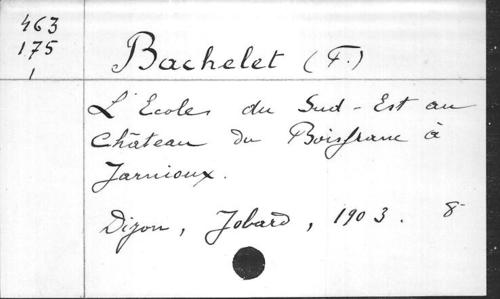 463
175
1
Bachelet (F.)
L'Ecole du Sud-Est au
Château du Boisfranc à
Jarnioux.
Dijon, Jobard, 1903. 8°